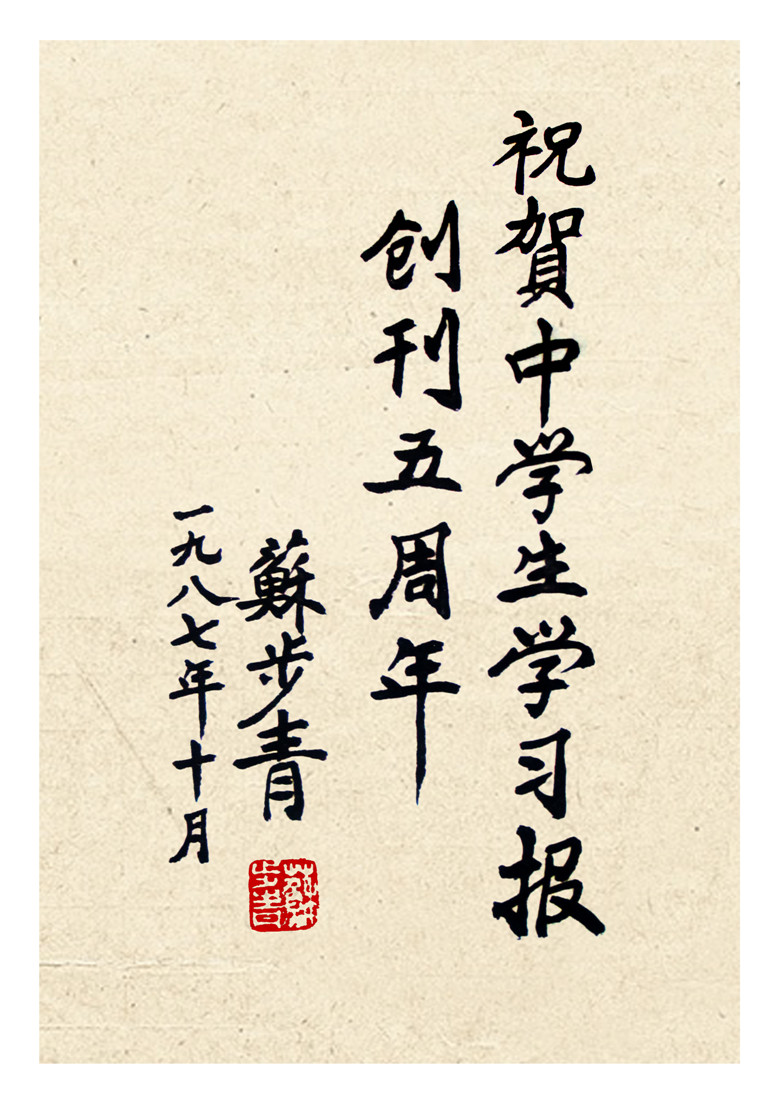 祝賀中学生学习报
创刊五周年
蘇步青
一九八七年十月
蘇步青